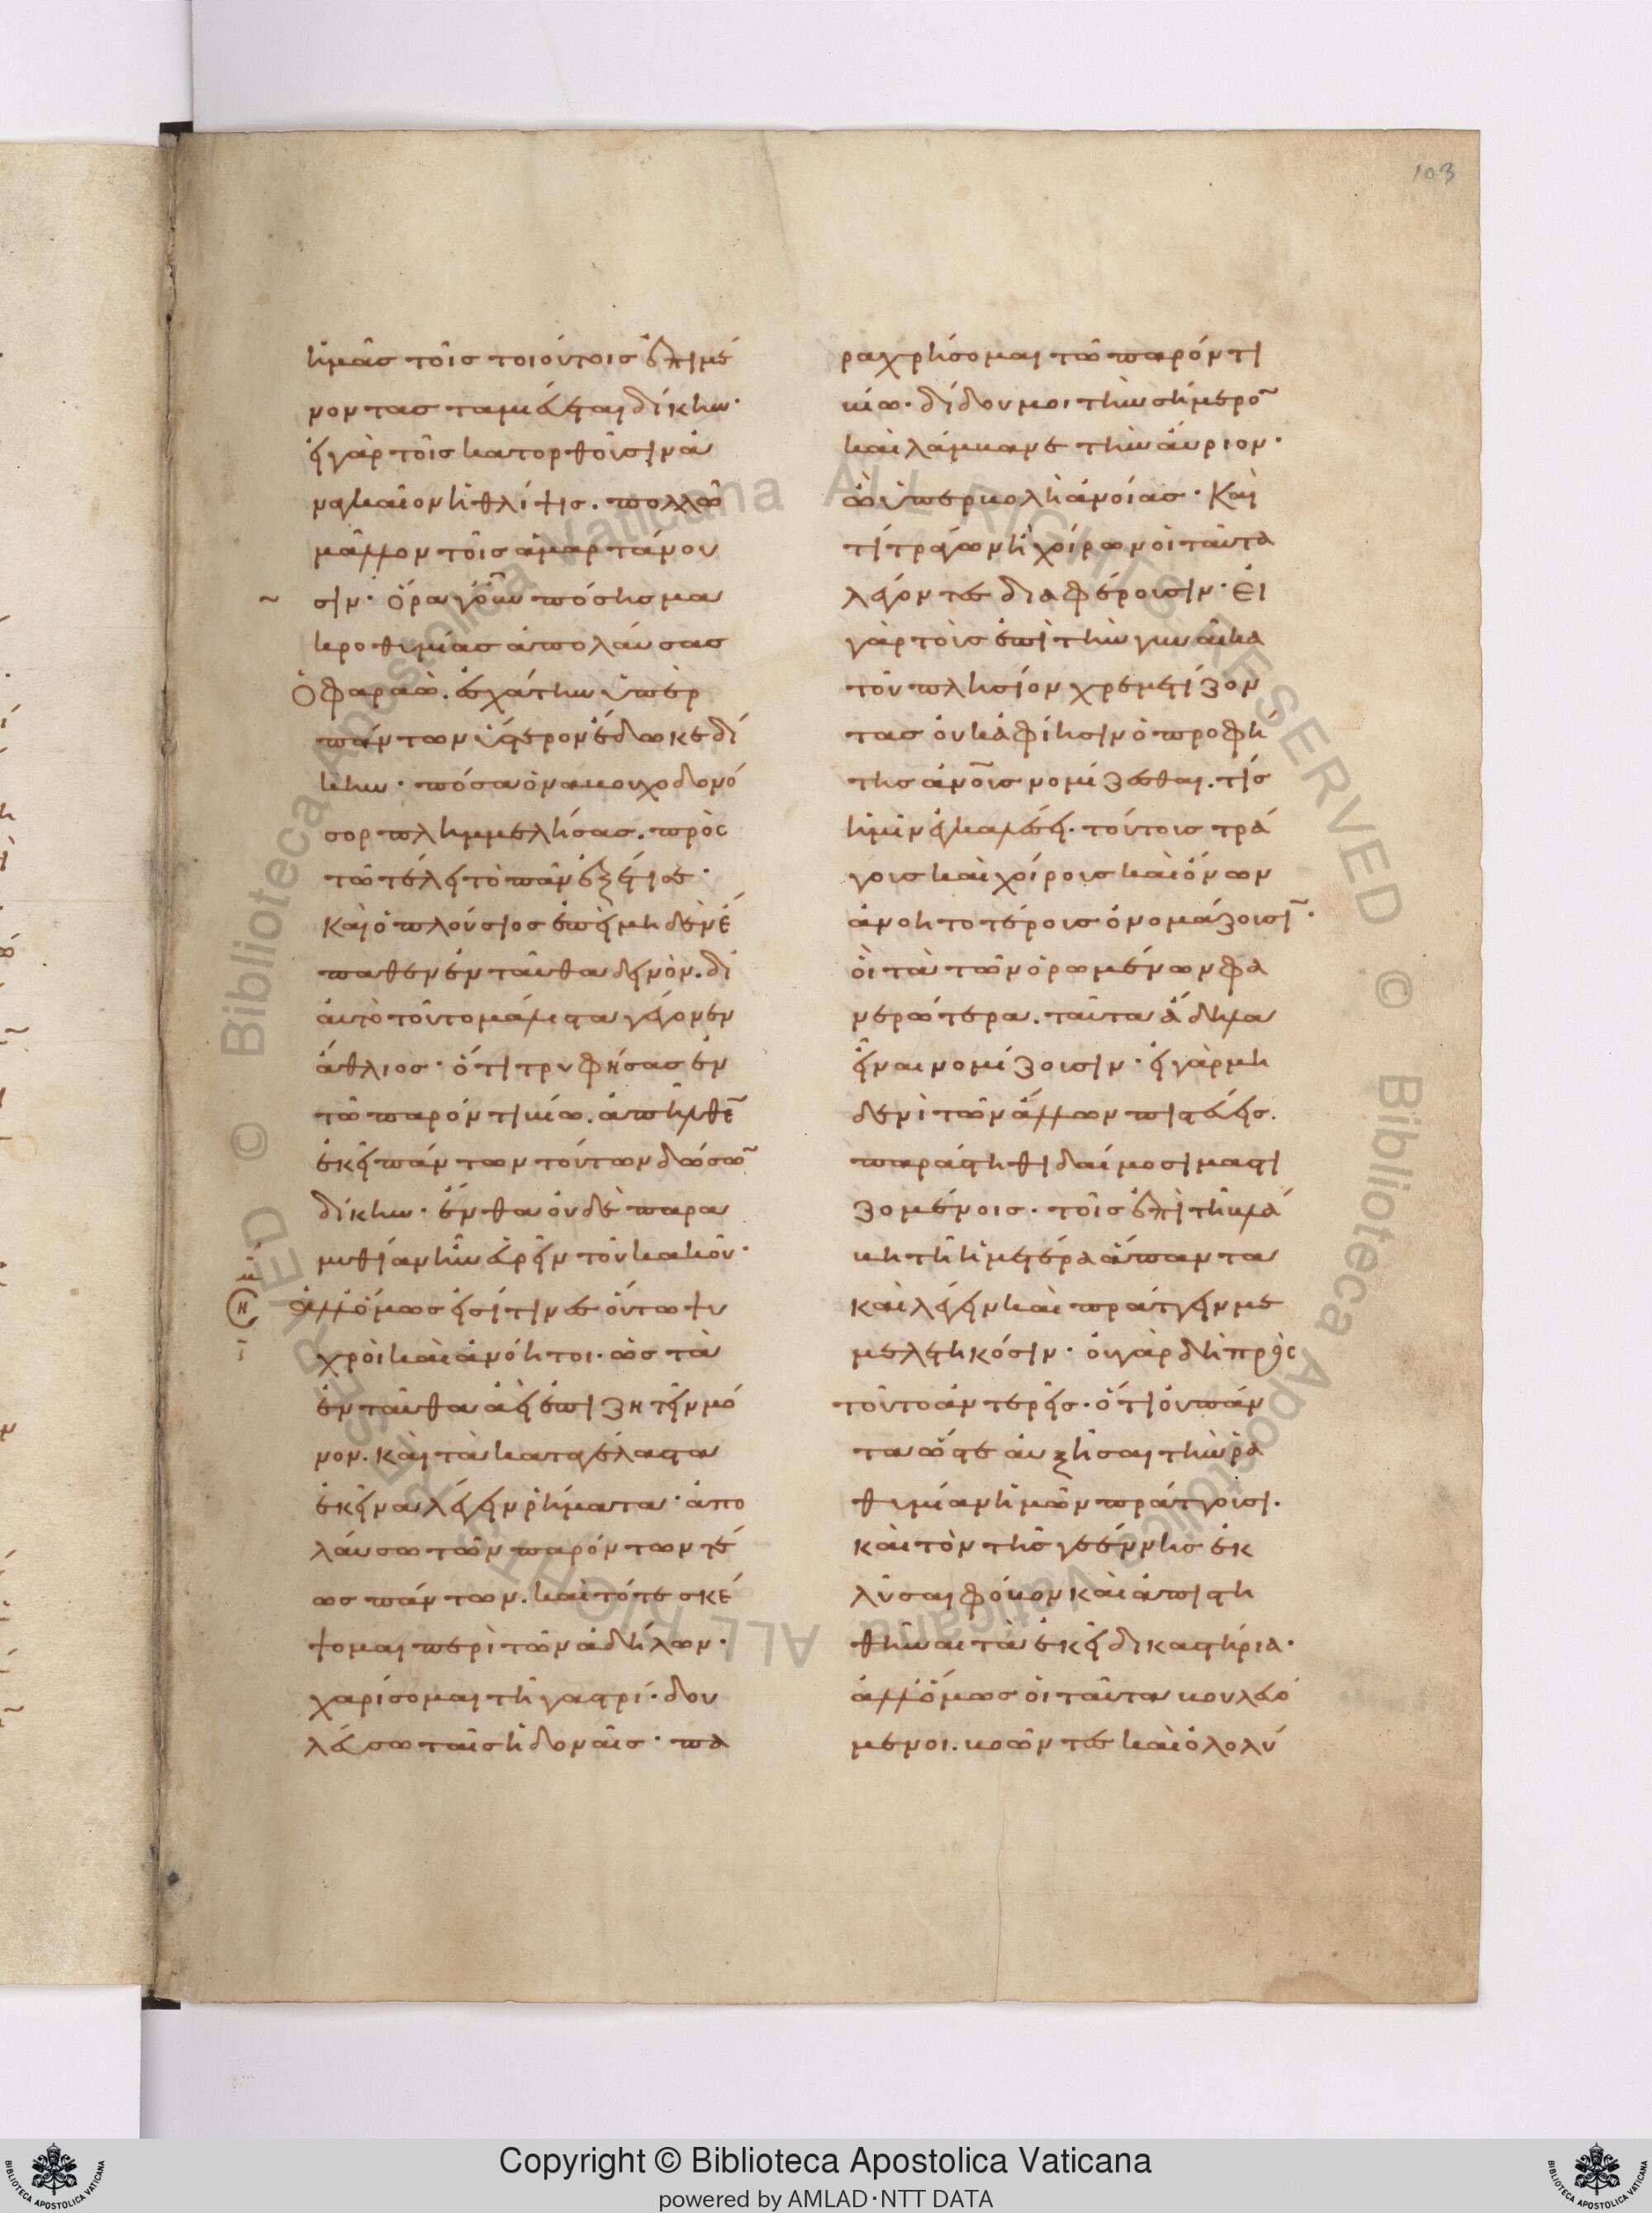 103
ἡμᾶς τοῖς τοιούτοις ἐπιμέ
νοντας ταμιεύεται δίκην·
εἰ γὰρ τοῖς κατορθοῦσιν ἀ
ναγκαῖον ἡ θλίψις. πολλῶ
μᾶλλον τοῖς ἁμαρτάνου
σιν· ὅρα γοῦν πόσης μα
κροθυμίας ἀπολαύσας
ὁ φαραὼ. ἐσχάτην ὑπὲρ
πάντων ὕστερον ἔδωκε δί
κην· πόσα ὁ ναβουχοδονό
σορ πλημμελήσας. πρὸς
τῶ τέλει τὸ πᾶν ἐξέτισε·
καὶ ὁ πλούσιος ἐπεὶ μηδὲν ἔ
παθεν ἐνταῦθα δεινὸν. δι
αὐτὸ τοῦτο μάλιστα γέγονεν
ἄθλιος· ὅτι τρυφήσας ἐν
τῶ παρόντι βίω. ἀπῆλθεν
ἐκεῖ πάντων τούτων δώσων
δίκην· ἔνθα οὐδὲ παρα
μυθίαν ἦν εὑρεῖν τοῦ κακοῦ·
ἀλλ' ὅμως εἰσί τινες οὕτω ψυ
χροὶ καὶ ἀνόητοι. ὡς τὰ
ἐνταῦθα ἀεὶ ἐπιζητεῖν μό
νον. καὶ τὰ καταγέλαστα
ἐκεῖνα λέγειν ῥήματα· ἀπο
λαύσω τῶν παρόντων τέ
ως πάντων. καὶ τότε σκέ
ψομαι περὶ τῶν ἀδήλων·
χαρίσομαι τῆ γαστρί· δου
λεύσω ταῖς ἡδοναῖς· πα
ραχρήσομαι τῶ παρόντι
βίω. δίδου μοι τὴν σήμερον
καὶ λάμβανε τὴν αὔριον·
ὢ ὑπερβολὴ ἀνοίας· Καὶ
τί τράγων ἢ χοίρων οἱ ταῦτα
λέγοντες διαφέρουσιν· Εἰ
γὰρ τοὺς ἐπὶ τὴν γυναῖκα
τοῦ πλησίον χρεμετίζον
τας οὐκ ἀφίησιν ὁ προφή
της ἀνους νομίζεσθαι. τίς
ἡμῖν ἐγκαλέσει. τούτοις τρά
γους καὶ χοίρους καὶ ὄνων
ἀνοητοτέρους ὀνομάζουσιν·
οἳ τὰ τῶν ὁρωμένων φα
νερώτερα. ταῦτα ἄδηλα
εἶναι νομίζουσιν· εἰ γὰρ μη
δενὶ τῶν ἄλλων πιστεύεις.
παράστηθι δαίμοσι μαστι
ζομένοις. τοῖς ἐπὶ τῆ βλά
βη τῆ ἡμετέρα ἅπαντα
καὶ λέγειν καὶ πράττειν με
μελετηκόσιν· οὐ γὰρ δὴ πρὸς
τοῦτο ἀντερεῖς. ὅτι οὐ πάν
τα ὥστε αὐξῆσαι τὴν ῥα
θυμίαν ἡμῶν πράττουσι.
καὶ τὸν τῆς γεέννης ἐκ
λῦσαι φόβον καὶ ἀπιστη
θῆναι τὰ ἐκεῖ δικαστήρια·
ἀλλ' ὅμως οἱ ταῦτα βουλόμε
μενοι. βοῶντες καὶ ὀλολύ
Copyright © Biblioteca Apostolica Vaticana
powered by AMLAD·NTT DATA